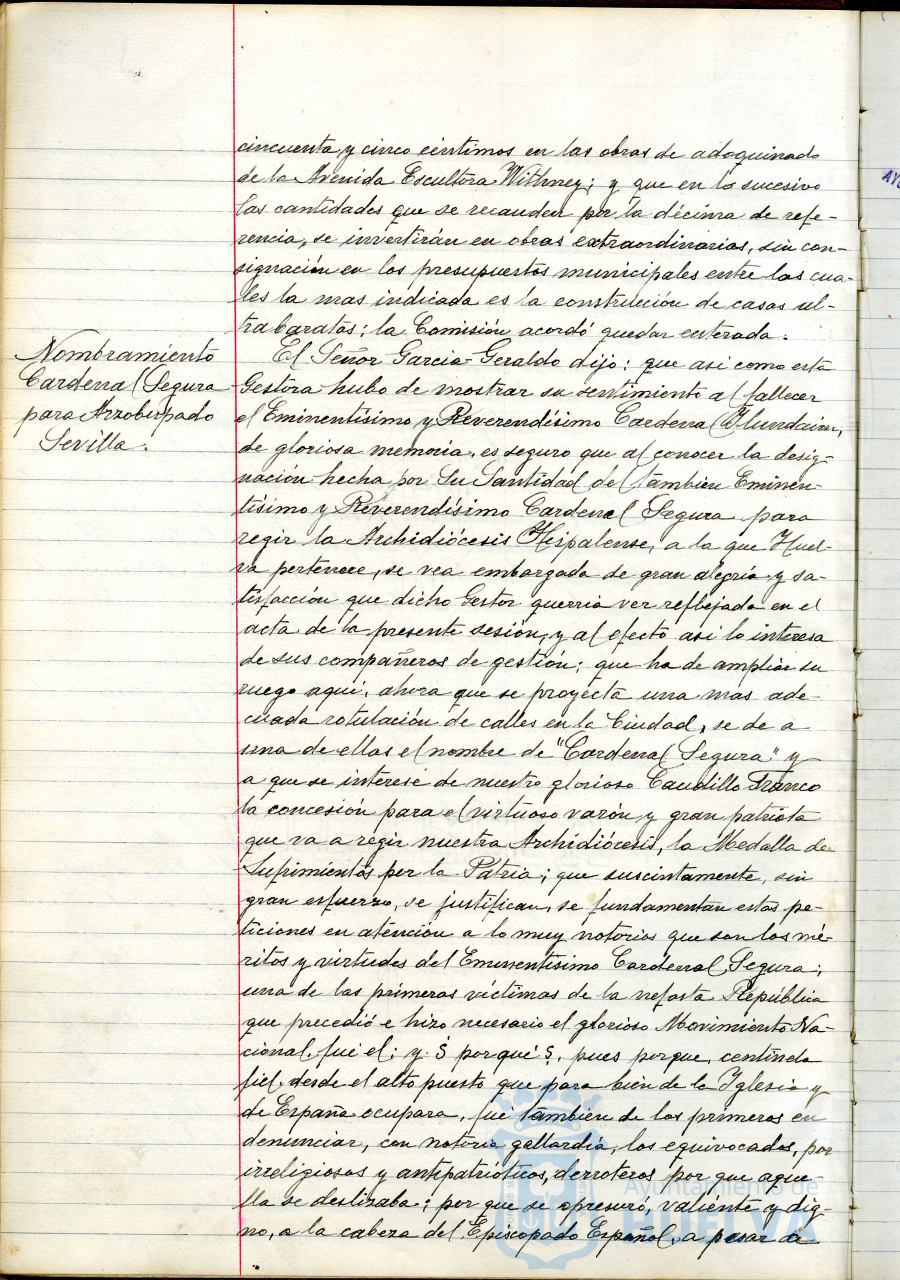 cincuenta y cinco céntimos en las obras de adoquinado
de la Avenida Escultora Withney; y que en lo sucesivo
las cantidades que se recauden por la décima de refe-
rencia, se invertirán en obras extraordinarias, sin con-
signación en los presupuestos municipales entre las cua-
les la mas indicada es la construcción de casas ul-
trabaratas; la Comisión acordó quedar enterada.
Nombramiento
Cardenal Segura
para Arzobispado
Sevilla.
El Señor Garcia-Geraldo dijo: que asi como esta
Gestora hubo de mostrar su sentimiento al fallecer
el Eminentísimo y Reverendísimo Cardenal Ylundain,
de gloriosa memoria, es seguro que al conocer la desig-
nación hecha por Su Santidad del tambien Eminen-
tísimo y Reverendísimo Cardenal Segura para
regir la Archidiócesis Hispalense, a la que Huel-
va pertenece, se vea embargada de gran alegría y sa-
tisfacción que dicho Gestor querria ver reflejada en el
acta de la presente sesión, y al efecto asi lo interesa
de sus compañeros de gestión; que ha de ampliar su
ruego aquí, ahora que se proyecta una mas ade-
cuada rotulación de calles en la Ciudad, se de a
una de ellas el nombre de "Cardenal Segura" y
a que se interese de nuestro glorioso Caudillo Franco
la concesión para el virtuoso varón y gran patriota
que va a regir nuestra Archidiócesis, la Medalla de
Sufrimientos por la Patria; que suscintamente, sin
gran esfuerzo, se justifican, se fundamentan estas pe-
ticiones en atención a lo muy notorios que son los mé-
ritos y virtudes del Eminentísimo Cardenal Segura;
una de las primeras víctimas de la nefasta República
que precedió e hizo necesario el glorioso Movimiento Na-
cional, fué el; y ¿porqué?, pues porque, centinela
fiel, desde el alto puesto que para bien de la Yglesia y
de España ocupara, fué tambien de los primeros en
denunciar, con notoria gallardía, los equivocados, por
irreligiosos y antipatrióticos, derroteros por que aque-
lla se deslizaba; por que se apresuró, valiente y dig-
no, a la cabeza del Episcopado Español, a pesar de
Ayuntamiento de
HUELVA